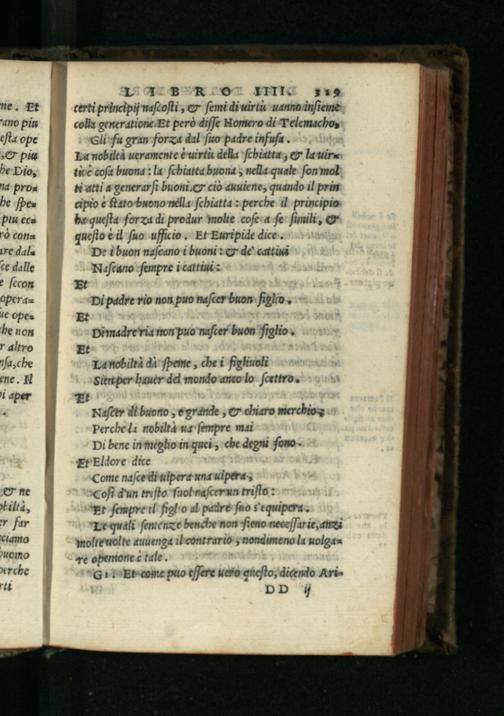 ne. Et
rano piu
esta ope
, & piu
he Dio,
na pro=
he spe-
piu ec=
rò con=
are dal=
sce dalle
e secon
opera=
ue ope=
he non
r altro
nsa, che
ene. Il
oi aper
& ne
obiltà,
er far
ciamo
huomo
perche
rti
LIBRO IIII. 329
certi principij nascosti, & semi di virtù uanno insieme
colla generatione. Et però disse Homero di Telemacho,
Gli fu gran forza dal suo padre infusa.
La nobiltà ueramente è virtù della schiatta, & la uir=
tù è cosa buona: la schiatta buona, nella quale son mol
ti atti a generarsi buoni. & ciò auuiene, quando il prin
cipio è stato buono nella schiatta: perche il principio
ha questa forza di produr molte cose a se simili, &
questo è il suo ufficio. Et Euripide dice.
De i buon nascano i buoni: & de' cattiui
Nascano sempre i cattiui:
Et
Di padre rio non puo nascer buon figlio.
Et
Di madre ria non puo nascer buon figlio.
Et
La nobiltà dà speme, che i figliuoli
Sien per hauer del mondo anco lo scettro.
Et
Nascer di buono, e grande, & chiaro
Perche la nobiltà ua sempre mai
Di bene in meglio in quei, che degni sono.
Et Eldore dice
Come nasce di uipera una uipera,
Così d'un tristo suol nascer un tristo:
Et sempre il figlio al padre suo s'equipera.
Le quali sentenze benche non sieno necessarie, anzi
molte uolte auuenga il contrario, nondimeno la uolga=
re openione è tale.
GI. Et come puo essere uero questo, dicendo Ari=
DD ij